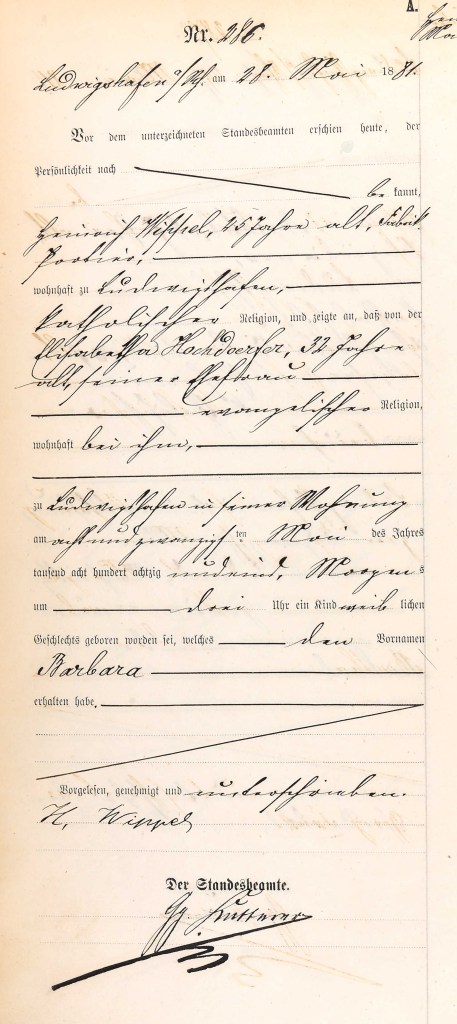 A.
Nr. 286.
Ludwigshafen a/Rh. am 28. Mai 1881.
Vor dem unterzeichneten Standesbeamten erschien heute, der
Persönlichkeit nach
be kannt,
Heinrich Wippel, 25 Jahre alt, Fabrik
Portier,
wohnhaft zu Ludwigshafen,
katholischer Religion, und zeigte an, daß von der
Elisabetha Hochdoerfer, 32 Jahre
alt, seiner Ehefrau
evangelischer Religion,
wohnhaft bei ihm,
zu Ludwigshafen in seiner Wohnung
am acht und zwanzigsten Mai des Jahres
tausend acht hundert achtzig undeins, Morgens
um drei Uhr ein Kind weiblichen
Geschlechts geboren worden sei, welches den Vornamen
Barbara
erhalten habe.
Vorgelesen, genehmigt und unterschrieben.
H. Wippel
Der Standesbeamte.
Gg. Kutterer